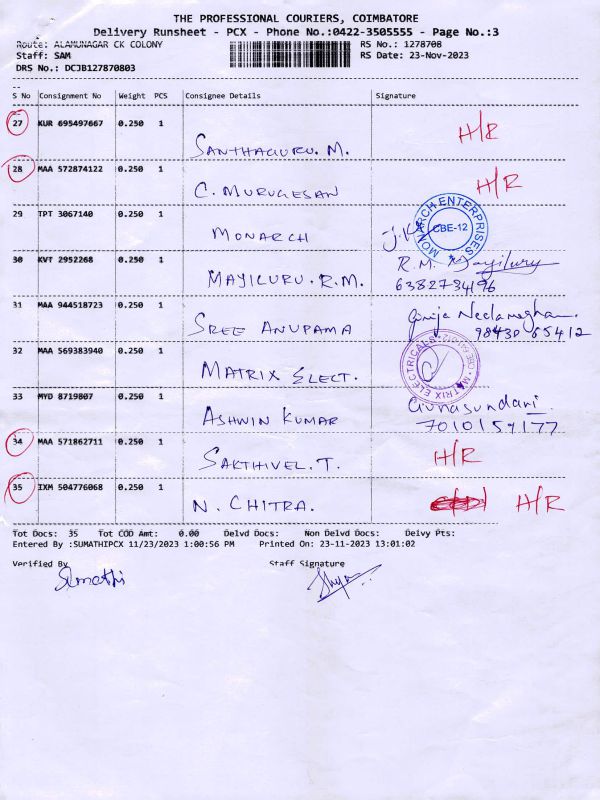 THE PROFESSIONAL COURIERS, COIMBATORE
Delivery Runsheet - PCX - Phone No.:0422-3505555 - Page No.:3
Route: ALAMUNAGAR CK COLONY
RS No.: 1278708
Staff: SAM
RS Date: 23-Nov-2023
DRS No.: DCJB127870803
S No Consignment No Weight PCS Consignee Details Signature
27 KUR 695497667 0.250 1
SANTHAGURU. M. H/R
28 MAA 572874122 0.250 1
C. MURUGESAN H/R
29 TPT 3067140 0.250 1
MONARCH
MONARCH ENTERPRISES CBE-12
30 KVT 2952268 0.250 1
MAYILURU. R.M. R.M. Mayiluru
6382734196
31 MAA 944518723 0.250 1
SREE ANUPAMA Girija Neelamegham.
98430 65412
32 MAA 569383940 0.250 1
MATRIX ELECT.
MATRIX ELECTRICALS
33 MYD 8719807 0.250 1
ASHWIN KUMAR Gunasundari.
7010159177
34 MAA 571862711 0.250 1
SAKTHIVEL. T. H/R
35 IXM 504776068 0.250 1
N. CHITRA. H/R
Tot Docs: 35 Tot COD Amt: 0.00 Delvd Docs: Non Delvd Docs: Delvy Pts:
Entered By :SUMATHIPCX 11/23/2023 1:00:56 PM Printed On: 23-11-2023 13:01:02
Verified By Staff Signature
Sumathi